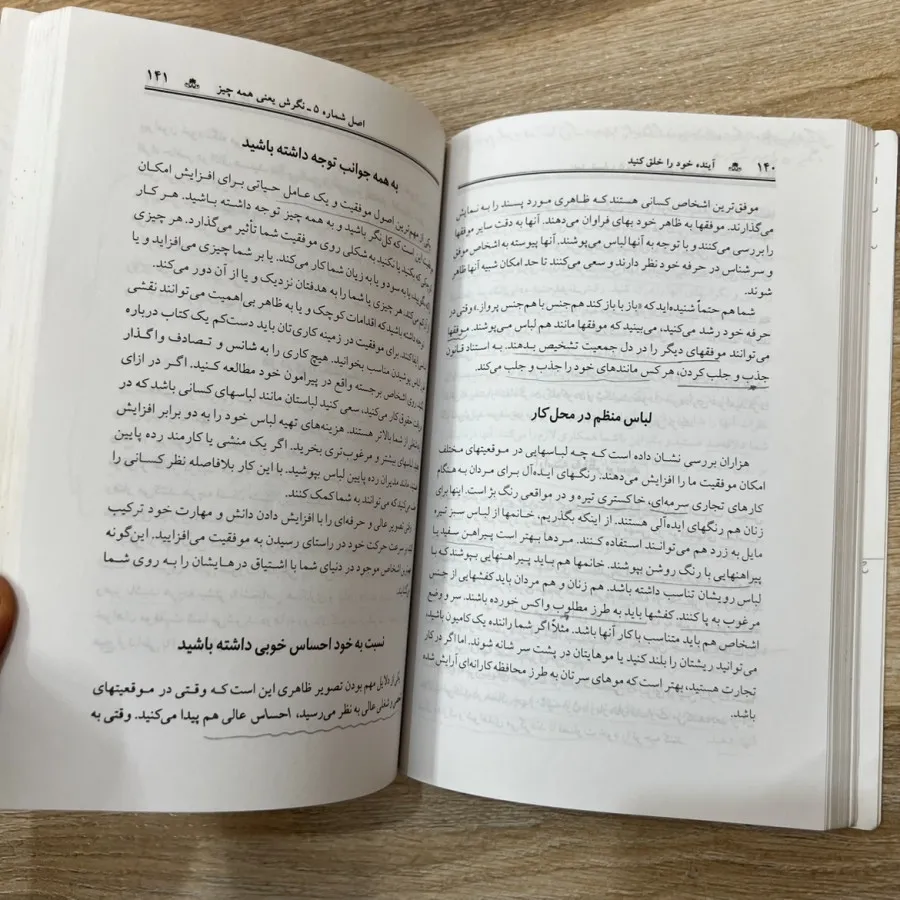 ۱۴۰ آینده خود را خلق کنید
موفق‌ترین اشخاص کسانی هستند که ظاهری مورد پسند را به نمایش
می‌گذارند. موفقها به ظاهر خود بهای فراوان می‌دهند. آنها به دقت سایر موفقها
را بررسی می‌کنند و با توجه به آنها لباس می‌پوشند. آنها پیوسته به اشخاص موفق
و سرشناس در حرفه خود نظر دارند و سعی می‌کنند تا حد امکان شبیه آنها ظاهر
شوند.
شما هم حتماً شنیده‌اید که «باز با باز کند هم‌جنس با هم‌جنس پرواز.» وقتی در
حرفه خود رشد می‌کنید، می‌بینید که موفقها مانند هم لباس می‌پوشند. موفقها
می‌توانند موفقهای دیگر را در دل جمعیت تشخیص بدهند. به استناد قانون
جذب و جلب کردن، هر کس مانندهای خود را جذب و جلب می‌کند.
لباس منظم در محل کار
هزاران بررسی نشان داده است که چه لباسهایی در موقعیتهای مختلف
امکان موفقیت ما را افزایش می‌دهند. رنگهای ایده‌آل برای مردان به هنگام
کارهای تجاری سرمه‌ای، خاکستری تیره و در مواقعی رنگ بژ است. اینها برای
زنان هم رنگهای ایده‌آلی هستند. از اینکه بگذریم، خانمها از لباس سبز تیره
مایل به زرد هم می‌توانند استفاده کنند. مردها بهتر است پیراهن سفید یا
پیراهنهایی با رنگ روشن بپوشند. خانمها هم باید پیراهنهایی بپوشند که با
لباس رویشان تناسب داشته باشد. هم زنان و هم مردان باید کفشهایی از جنس
مرغوب به پا کنند. کفشها باید به طرز مطلوب واکس خورده باشند. سر و وضع
اشخاص هم باید متناسب با کار آنها باشد. مثلاً اگر شما راننده یک کامیون باشید،
می‌توانید ریشتان را بلند کنید یا موهایتان در پشت سر شانه شوند. اما اگر در کار
تجارت هستید، بهتر است که موهای سرتان به طرز محافظه کارانه‌ای آرایش شده
باشد.
اصل شماره ۵ ـ نگرش یعنی همه چیز ۱۴۱
به همه جوانب توجه داشته باشید
یکی از مهم‌ترین اصول موفقیت و یک عامل حیاتی برای افزایش امکان
این است که کل‌نگر باشید و به همه چیز توجه داشته باشید. هر کار
که بکنید یا نکنید به شکلی روی موفقیت شما تأثیر می‌گذارد. هر چیزی
یا به سود و یا به زیان شما کار می‌کند. یا بر شما چیزی می‌افزاید و یا
هر چیزی یا شما را به هدفتان نزدیک و یا از آن دور می‌کند.
داشته باشید که اقدامات کوچک و یا به ظاهر بی‌اهمیت می‌توانند نقشی
ایفا کنند. برای موفقیت در زمینه کاری‌تان باید دست‌کم یک کتاب درباره
لباس پوشیدن مناسب بخوانید. هیچ کاری را به شانس و تصادف واگذار
روی اشخاص برجسته واقع در پیرامون خود مطالعه کنید. اگر در ازای
حقوق کار می‌کنید، سعی کنید لباستان مانند لباسهای کسانی باشد که در
از شما بالاتر هستند. هزینه‌های تهیه لباس خود را به دو برابر افزایش
لباسهای بیشتر و مرغوب‌تری بخرید. اگر یک منشی یا کارمند رده پایین
مانند مدیران رده پایین لباس بپوشید. با این کار بلافاصله نظر کسانی را
می‌کنید که می‌توانند به شما کمک کنند.
وقتی تصویر عالی و حرفه‌ای را با افزایش دادن دانش و مهارت خود ترکیب
سرعت حرکت خود در راستای رسیدن به موفقیت می‌افزایید. این‌گونه
اشخاص موجود در دنیای شما با اشتیاق درهایشان را به روی شما
نسبت به خود احساس خوبی داشته باشید
یکی از دلایل مهم بودن تصویر ظاهری این است که وقتی در موقعیتهای
و شغلی عالی به نظر می‌رسید، احساس عالی هم پیدا می‌کنید. وقتی به